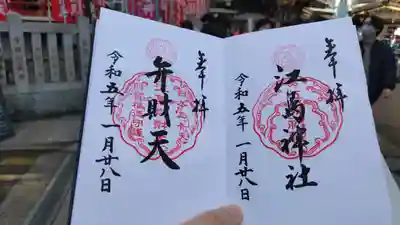 奉拝
江島神社
令和五年 一月廿八日
奉拝
弁財天
令和五年 一月廿八日